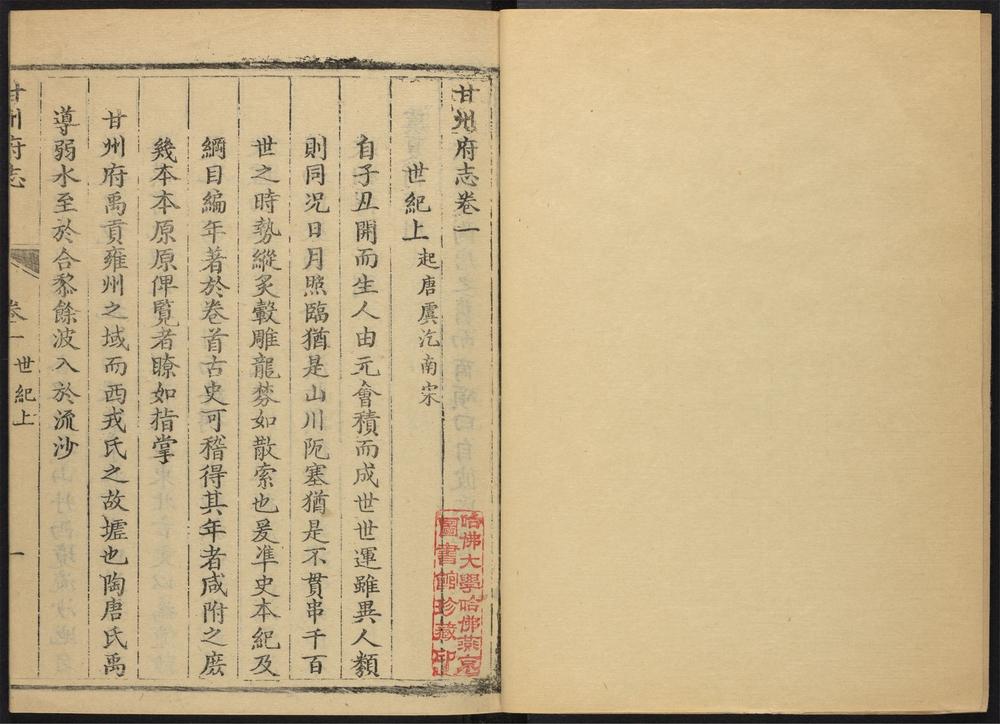 甘州府志卷一
世紀上 起唐虞汔南宋
自子丑開而生人由元會積而成世世運雖異人類
則同况日月照臨猶是山川阨塞猶是不貫串千百
世之時勢縱炙轂雕龍棼如散索也爰準史本紀及
綱目編年著於卷首古史可稽得其年者咸附之庶
幾本本原原俾覽者瞭如指掌
甘州府禹貢雍州之域而西戎氏之故墟也陶唐氏禹
導弱水至於合黎餘波入於流沙
甘州府志
卷一 世紀上
一
哈佛大學哈佛燕京
圖書館珍藏印